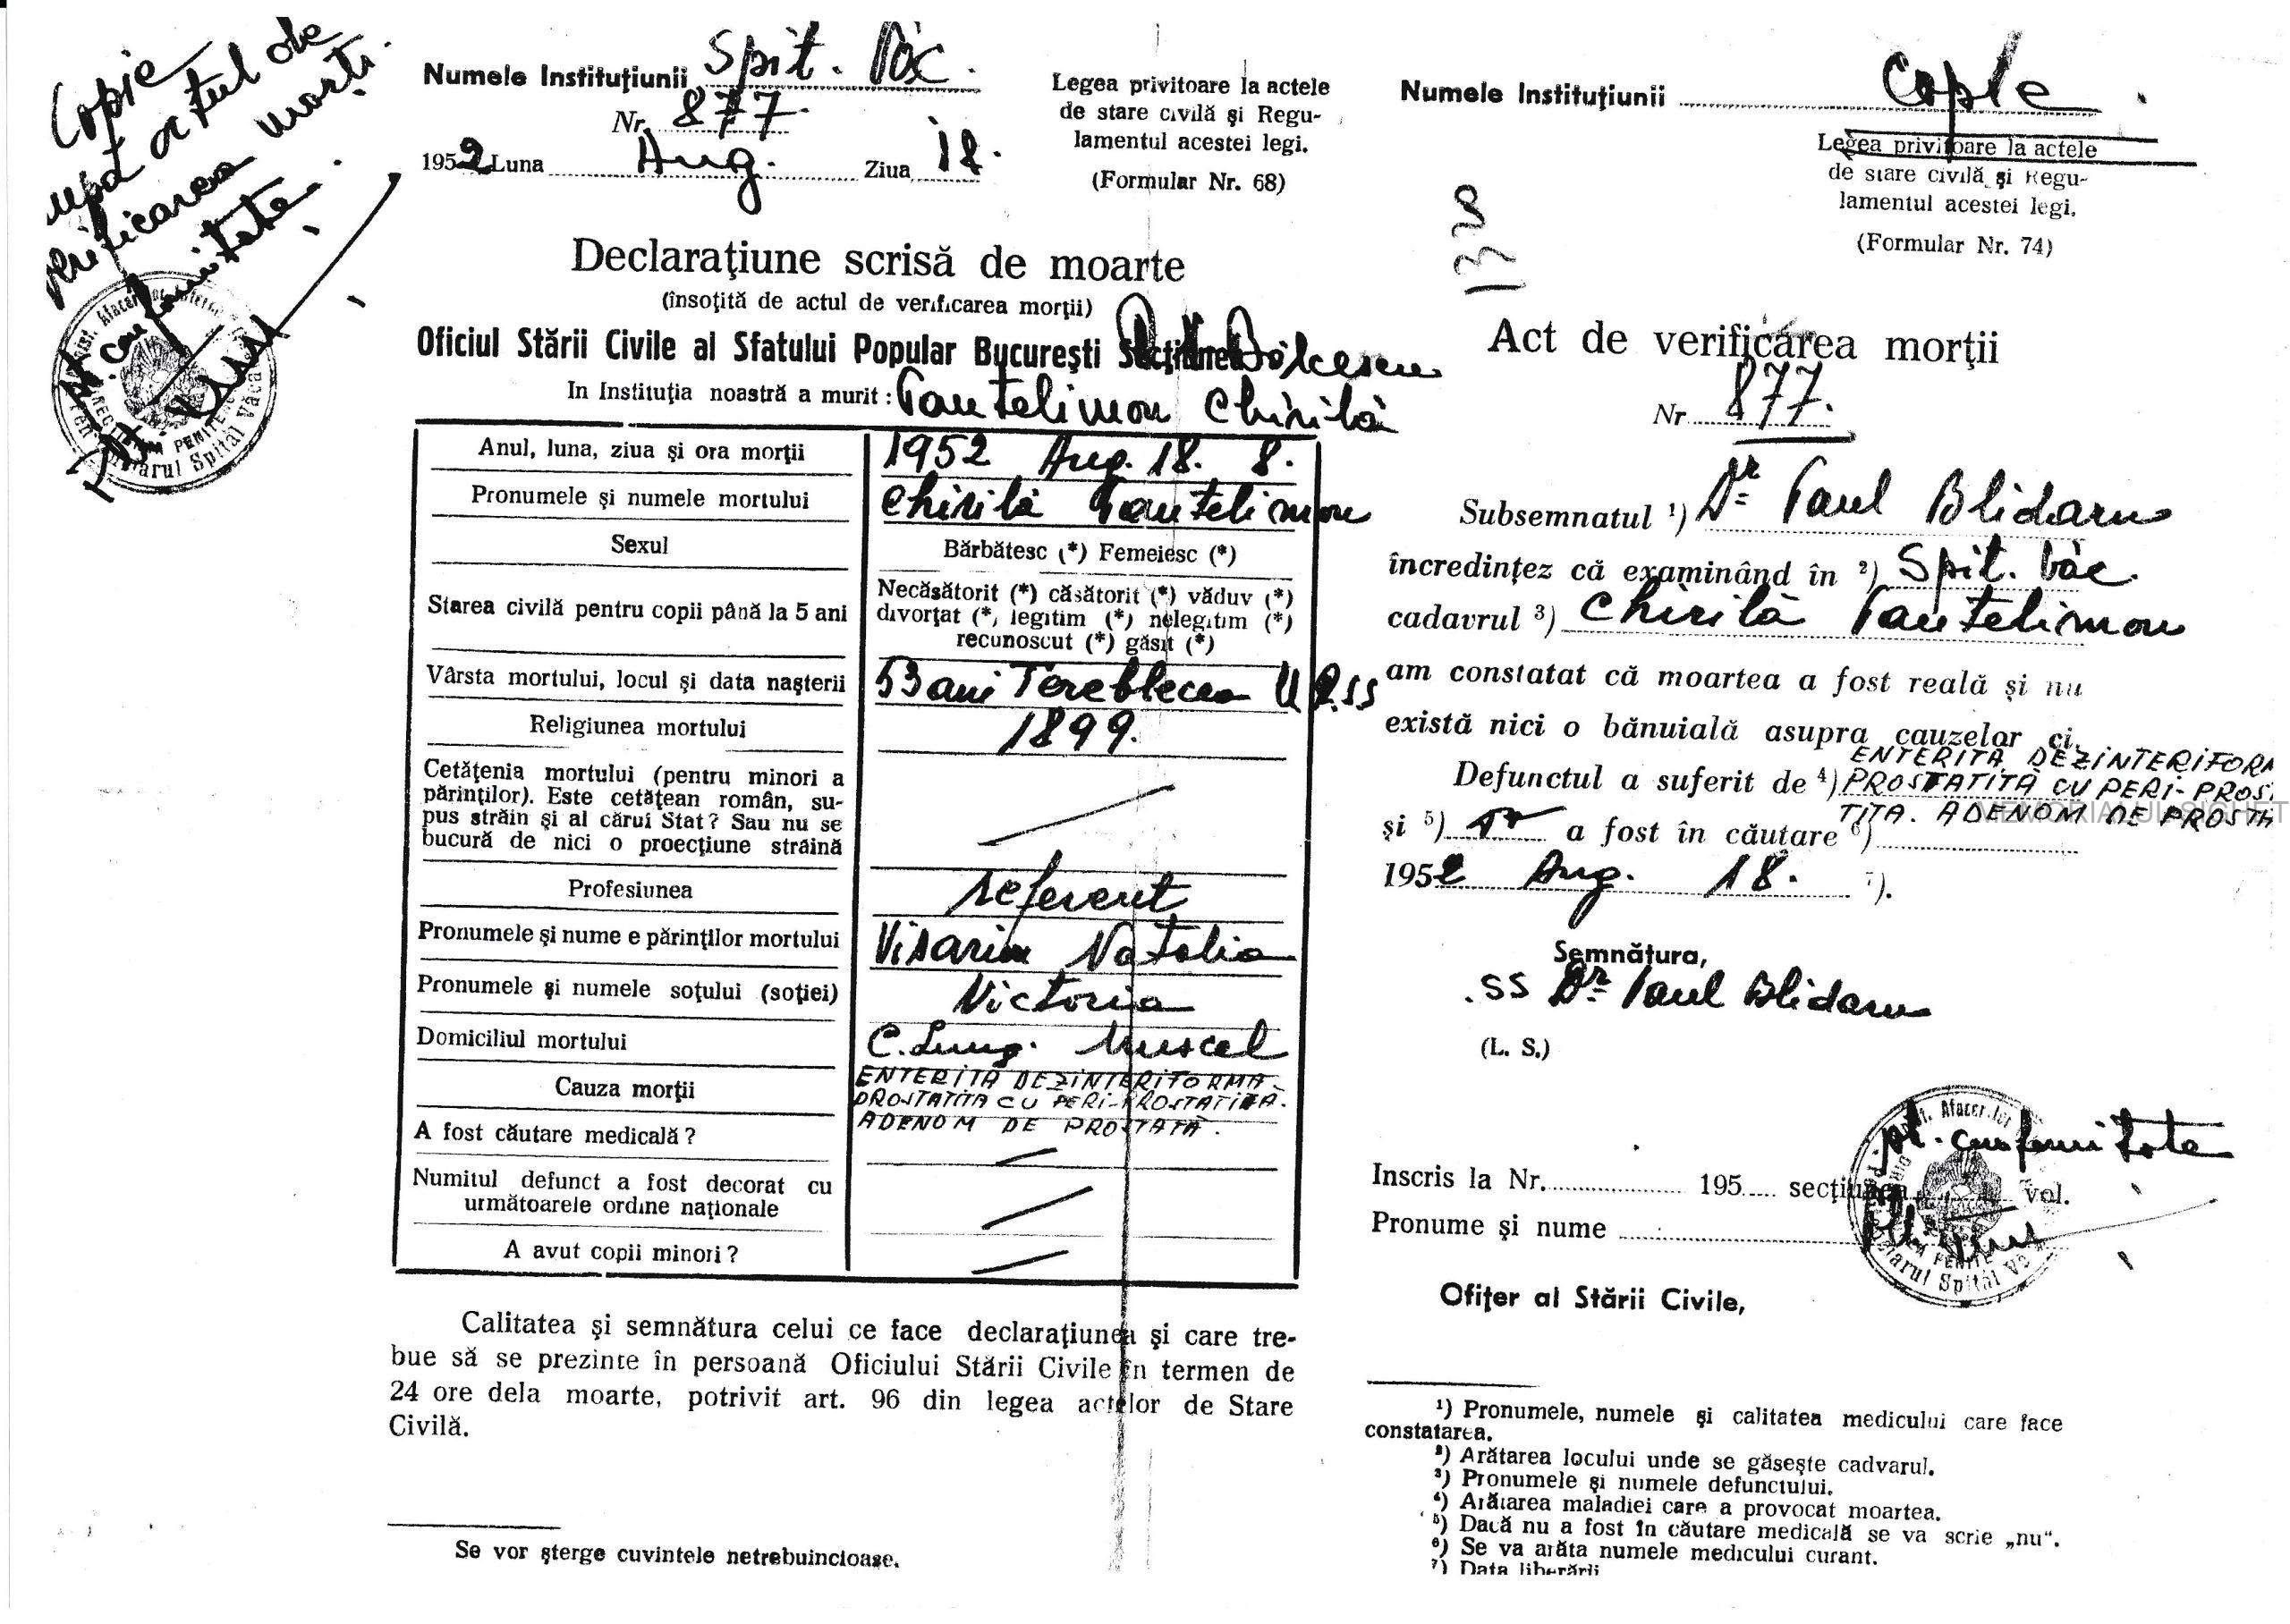 Copie
actul de
verificarea morții
pt. conformitate.
Numele Instituţiunii Spit. Văc.
Nr. 877.
1952 Luna Aug. Ziua 18.
Legea privitoare la actele
de stare civilă şi Regu-
lamentul acestei legi.
(Formular Nr. 68)
Declaraţiune scrisă de moarte
(însoţită de actul de verificarea morţii)
Oficiul Stării Civile al Sfatului Popular Bucureşti Secţiunea
In Instituţia noastră a murit : Pantelimon Chirilă
Anul, luna, ziua şi ora morţii 1952 Aug. 18. 8.
Pronumele şi numele mortului Chirilă Pantelimon
Sexul Bărbătesc (*) Femeiesc (*)
Starea civilă pentru copii până la 5 ani
Necăsătorit (*) căsătorit (*) văduv (*)
divorţat (*, legitim (*) nelegitim (*)
recunoscut (*) găsit (*)
Vârsta mortului, locul şi data naşterii 53 ani Tereblecea URSS
Religiunea mortului 1899.
Cetăţenia mortului (pentru minori a
părinţilor). Este cetăţean român, su-
pus străin şi al cărui Stat? Sau nu se
bucură de nici o proecţiune străină
Profesiunea referent
Pronumele şi nume e părinţilor mortului Visarion Natalia
Pronumele şi numele soţului (soţiei) Victoria
Domiciliul mortului C. Lung. Muscel
Cauza morţii ENTERITĂ DEZINTERIFORMĂ.
PROSTATITĂ CU PERI-PROSTATITĂ.
ADENOM DE PROSTATĂ.
A fost căutare medicală?
Numitul defunct a fost decorat cu
următoarele ordine naţionale
A avut copii minori?
Calitatea şi semnătura celui ce face declaraţiunea şi care tre-
bue să se prezinte în persoană Oficiului Stării Civile în termen de
24 ore dela moarte, potrivit art. 96 din legea actelor de Stare
Civilă.
Se vor şterge cuvintele netrebuincioase.
Numele Instituţiunii Copie.
Legea privitoare la actele
de stare civilă şi Regu-
lamentul acestei legi.
(Formular Nr. 74)
Act de verificarea morţii
Nr 877.
Subsemnatul ¹) Dr Paul Blidaru
încredinţez că examinând în ²) Spit. Văc.
cadavrul ³) Chirilă Pantelimon
am constatat că moartea a fost reală şi nu
există nici o bănuială asupra cauzelor ei.
ENTERITĂ DEZINTERIFORM
Defunctul a suferit de ⁴) PROSTATITĂ CU PERI-PROS
TITĂ. ADENOM DE PROSTA
MEMORIALUL SIGHET
şi ⁵) a fost în căutare ⁶)
1952 Aug. 18. ⁷).
Semnătura,
SS Dr Paul Blidaru
(L. S.)
pt. conformitate
Inscris la Nr. 195 secţiunea vol.
Pronume şi nume
Ofiţer al Stării Civile,
¹) Pronumele, numele şi calitatea medicului care face
constatarea.
²) Arătarea locului unde se găseşte cadvarul.
³) Pronumele şi numele defunctului.
⁴) Arătarea maladiei care a provocat moartea.
⁵) Dacă nu a fost în căutare medicală se va scrie „nu“.
⁶) Se va arăta numele medicului curant.
⁷) Data liberării